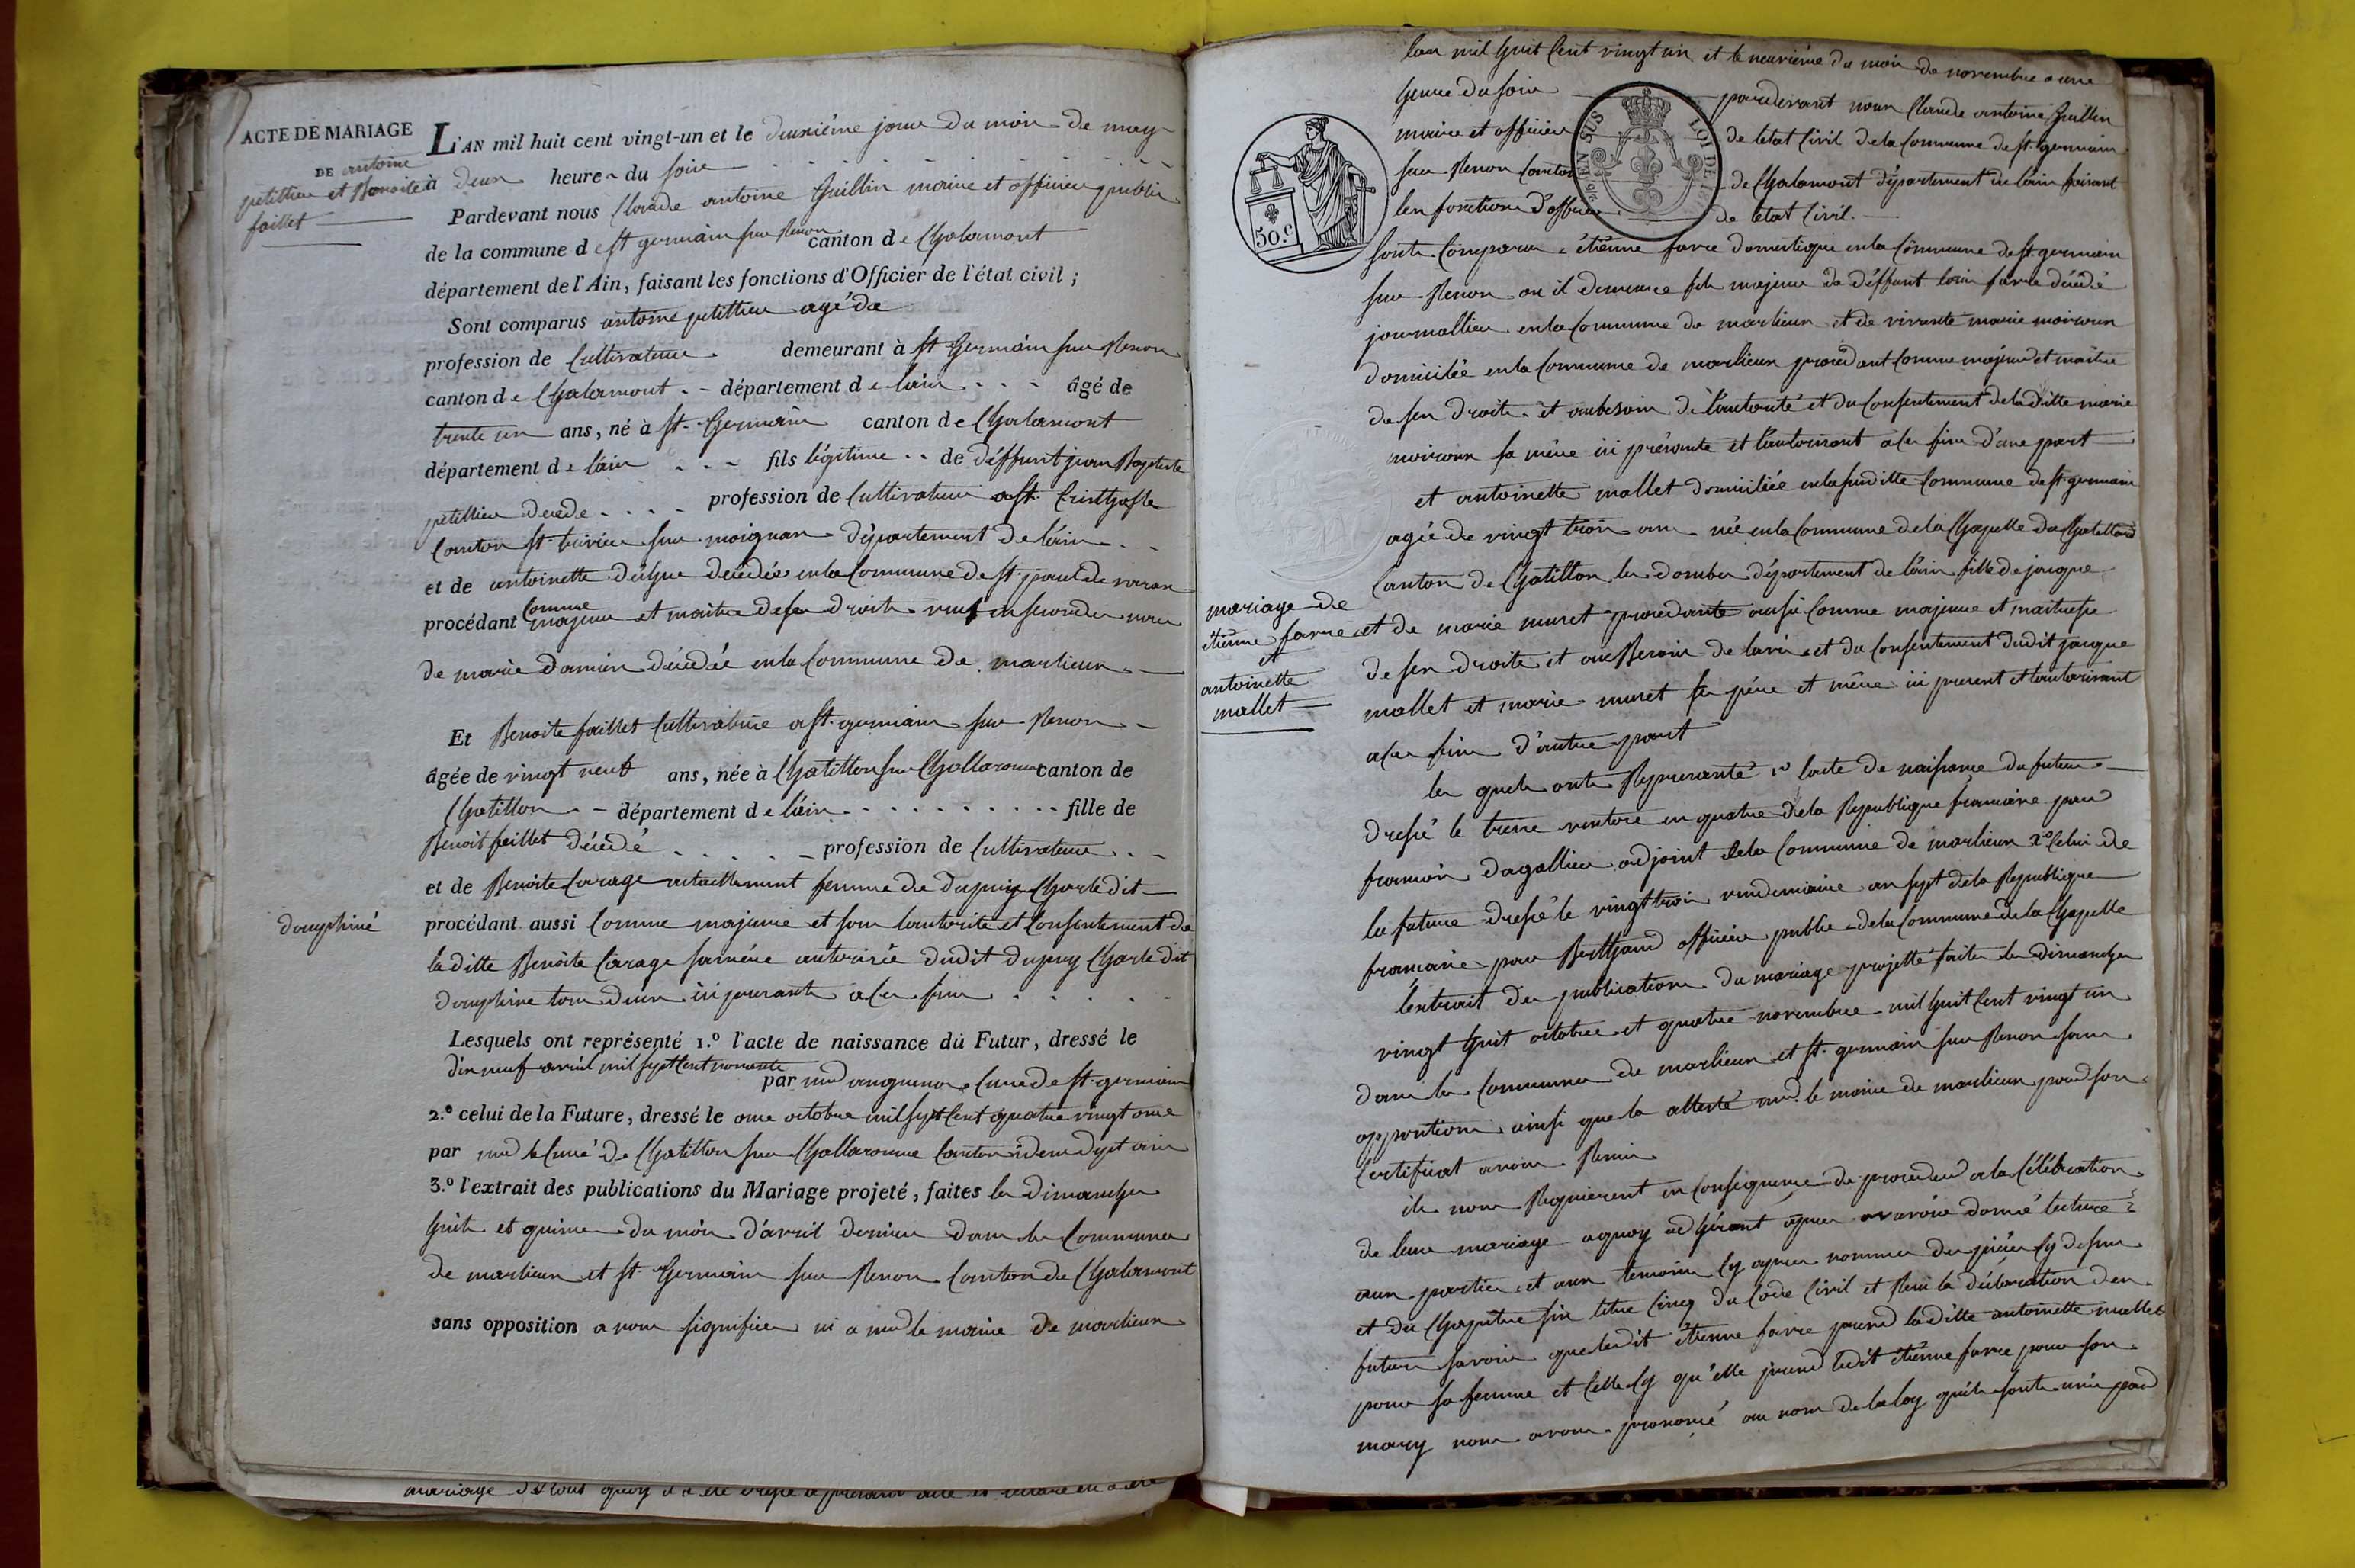 ACTE DE MARIAGE
DE antoine
petittier et Benoite
faillet
L'AN mil huit cent vingt-un et le deuxième jour du mois de may
à deux heures du soir
Pardevant nous Claude antoine Guillin maire et officier public
de la commune de st germain sur Renon canton de Chalamont
département de l'Ain, faisant les fonctions d'Officier de l'état civil ;
Sont comparus antoine petittier agé de
profession de Cultivateur demeurant à st Germain sur Renon
canton de Chalamont département de l'ain âgé de
trente un ans, né à st Germain canton de Chalamont
département de l'ain fils légitime de déffunt jean Baptiste
petittier décédé profession de Cultivateur a st Cristhofle
Canton st trivier sur moignan département de l'ain
et de antoinette décédée en la Commune de st paul de varax
procédant Comme majeur et maitre de ses droits veuf en secondes noces
de marie damian décédée en la Commune de marlieux
Et Benoite faillet Cultivatrice a st germain sur Renon
âgée de vingt neuf ans, née à Chatillon sur Challaronne canton de
Chatillon département de l'ain fille de
Benoit faillet décédé profession de Cultivateur
et de Benoite Carage actuellement femme de dupuy Charle dit
dauphiné
procédant aussi Comme majeure et sous l'autorité et Consentement de
la ditte Benoite Carage sa mère autorisée dudit dupuy Charle dit
dauphiné tous deux ici présents a ces fins
Lesquels ont représenté 1.º l'acte de naissance du Futur, dressé le
dix neuf avril mil sept Cent nonante
par mr Curé de st germain
2.º celui de la Future, dressé le onze octobre mil sept Cent quatre vingt onze
par mr le Curé de Chatillon sur Challaronne Canton idem dept ain
3.º l'extrait des publications du Mariage projeté, faites les dimanches
huit et quinze du mois d'avril dernier dans les Communes
de marlieux et st Germain sur Renon Canton de Chalamont
sans opposition a nous signifiée ni a mr le maire de marlieux
lan mil huit Cent vingt un et le neuvième du mois de novembre a une
heure du soir pardevant nous Claude antoine Guillin
maire et officier de letat Civil de la Commune de st germain
sur Renon Canton de Chalamont département de l'ain faisant
les fonctions d'officier de letat Civil.
EN SUS
LOI DE
50.c
sont Comparus étienne favre domestique en la Commune de st germain
sur Renon ou il demeure fils majeur de déffunt louis favre décédé
journallier en la Commune de marlieux et de vivante marie moiroux
domiciliée en la Commune de marlieux procédant Comme majeur et maitre
de ses droits et au besoin de l'autorité et du Consentement de laditte marie
moiroux sa mère ici présente et l'autorisant a ces fins d'une part
et antoinette mallet domiciliée en la susditte Commune de st germain
agée de vingt trois ans née en la Commune de la Chapelle du Chatellard
Canton de Chatillon les dombes département de l'ain fille de jacque
mariage de
étienne favre
et
antoinette
mallet
et de marie muret procédante aussi Comme majeure et maitresse
de ses droits et au Besoin de lavis et du Consentement dudit jacque
mallet et marie muret ses père et mère ici présent et l'autorisant
a ces fins d'autre part
les quels ont Représenté 1º l'acte de naissance du futur
dressé le treize ventose an quatre de la Republique francaise par
francois dagallier adjoint de la Commune de marlieux 2º Celui de
la future dressé le vingt trois vendemiaire an sept de la Republique
francaise par Berthaud officier public de la Commune de la Chapelle
l'extrait des publications du mariage projetté faites les dimanches
vingt huit octobre et quatre novembre mil huit Cent vingt un
dans les Communes de marlieux et st germain sur Renon sans
oppositions ainsi que la attesté mr le maire de marlieux par son
Certificat a nous Remis
ils nous Requierent en Conséquence de procéder a la Célébration
de leur mariage aquoy adhérant après avoir donné lecture
aux parties et aux témoins Cy après nommés des pièces Cy dessus
et du Chapitre six titre Cinq du Code Civil et Reçu la déclaration des
futurs savoir que ledit étienne favre prend laditte antoinette mallet
pour sa femme et Celle Cy qu'elle prend ledit étienne favre pour son
mary nous avons prononcé au nom de la loy quils sont unis par